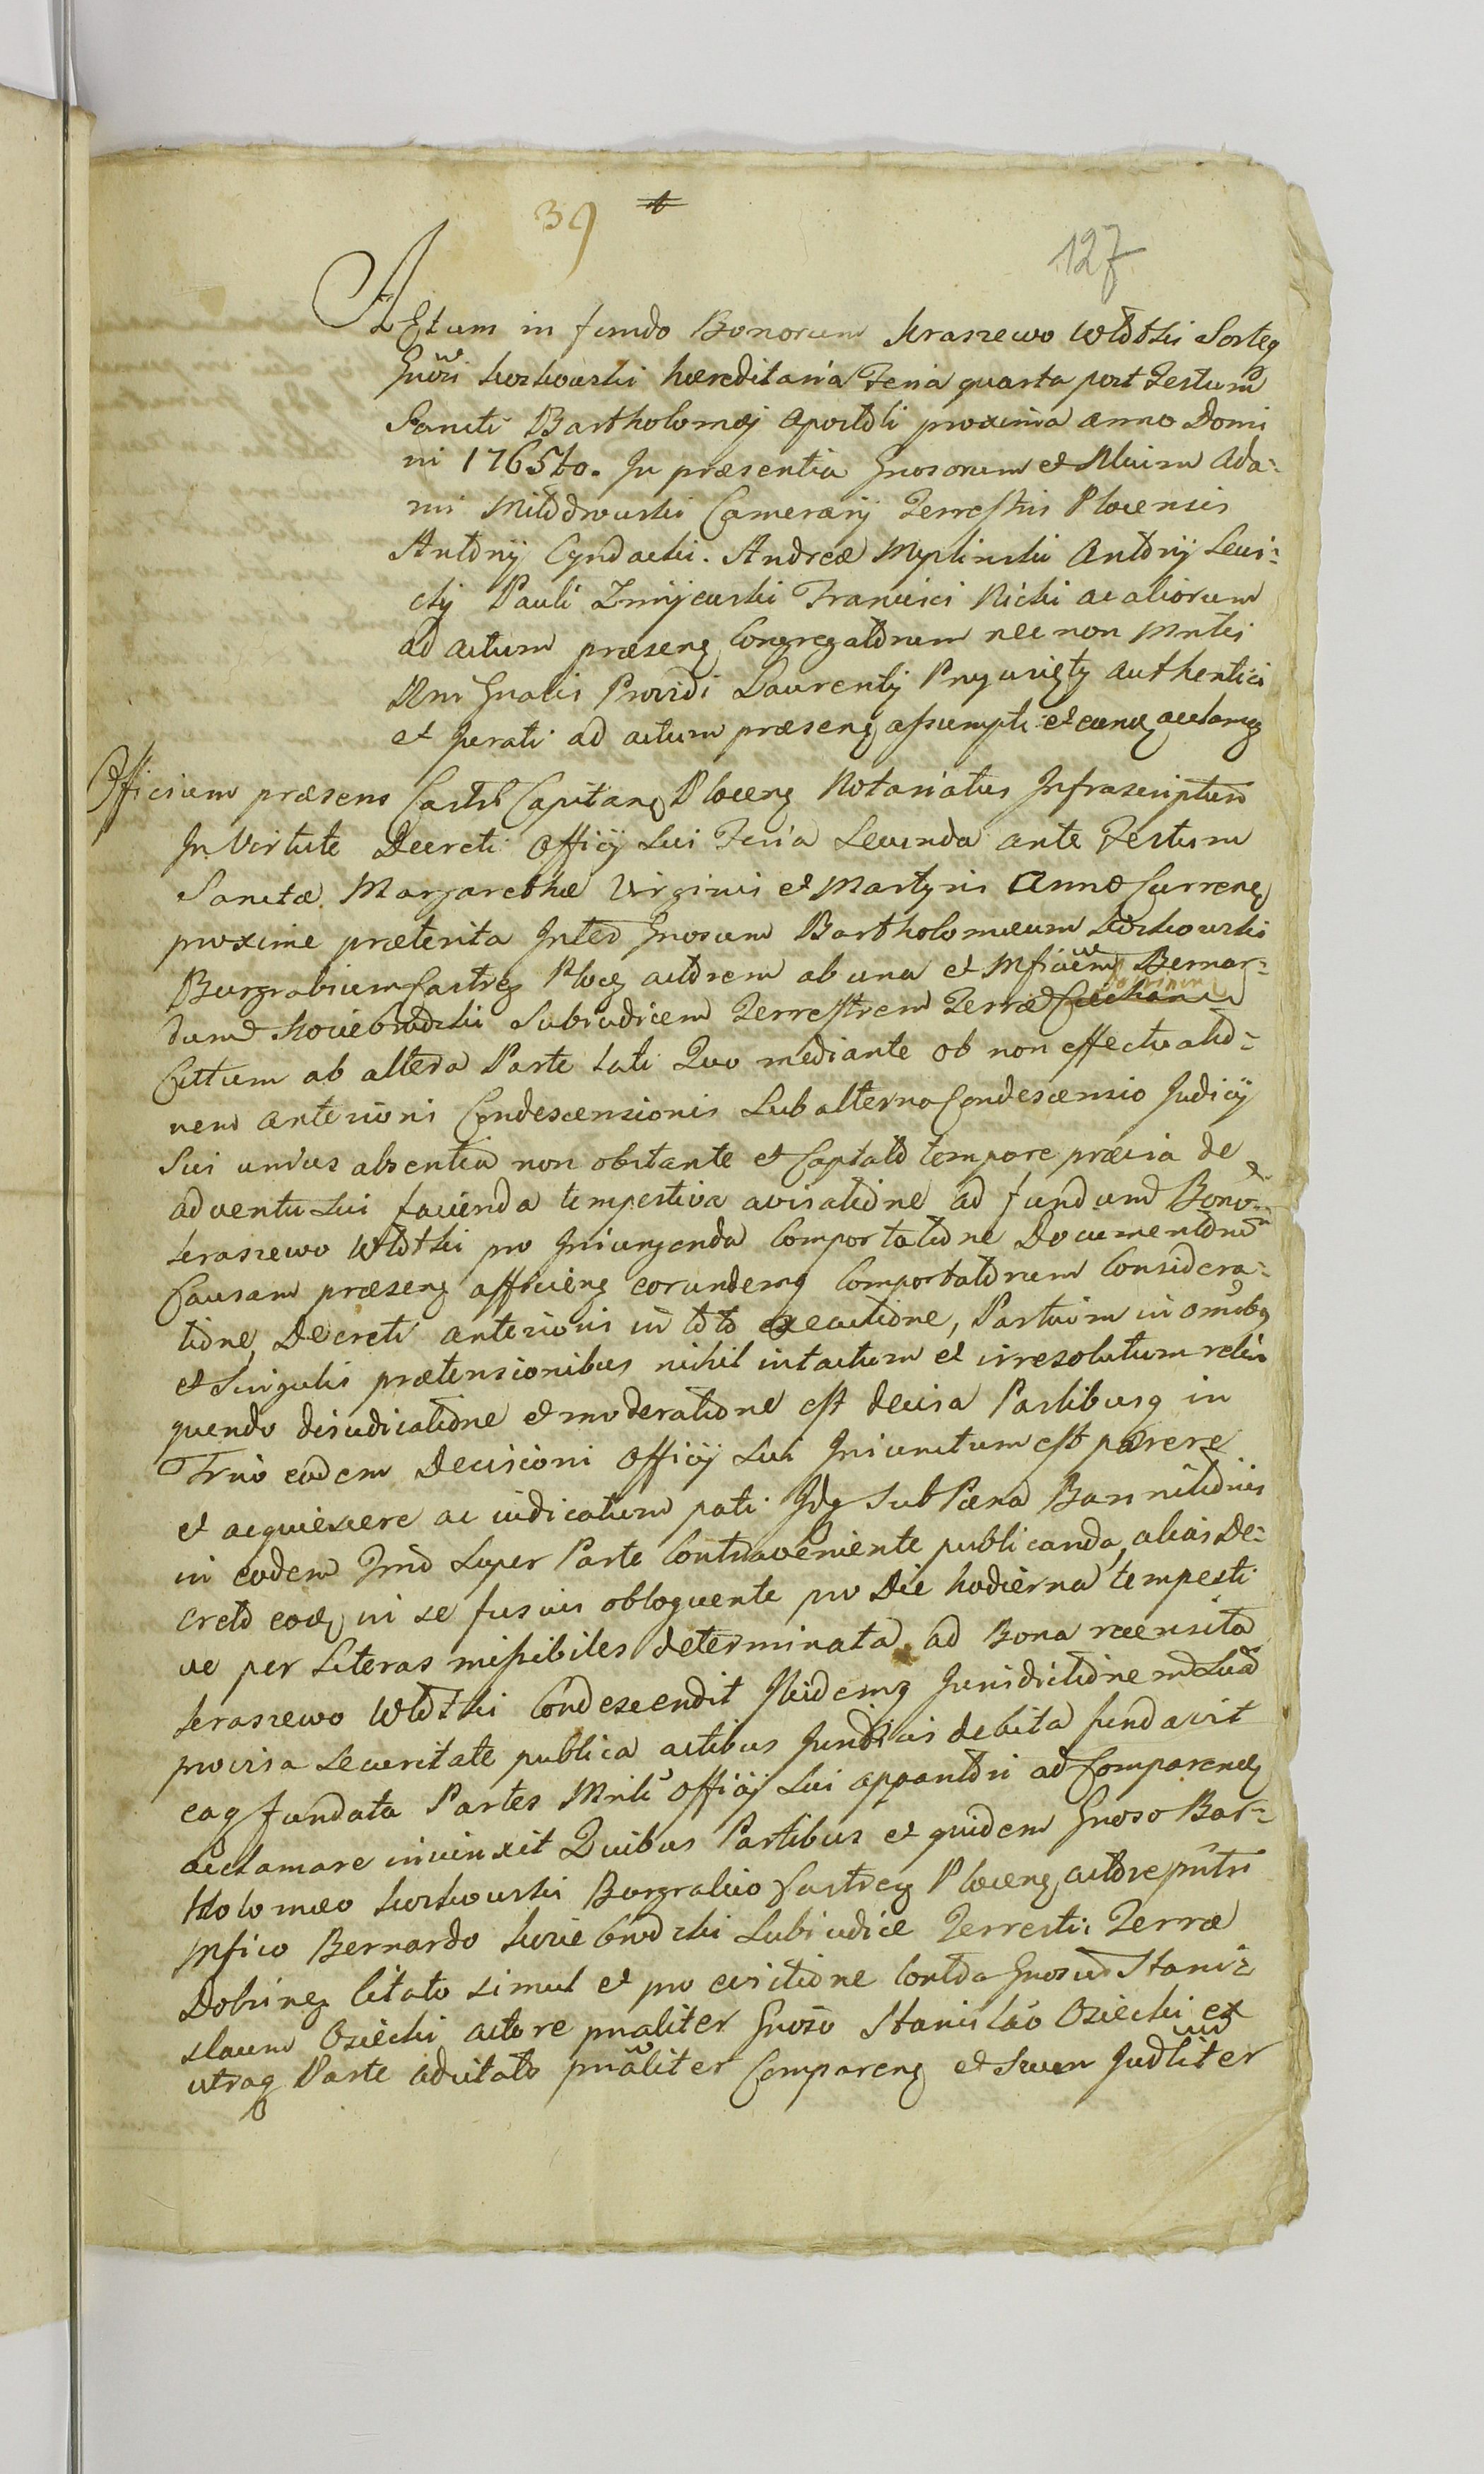 39
127
Actum in fundo Bonorum Kraszewo Włotki Sortis
Gnosi Korkowski hæreditaria Feria quarta post Festum
Sancti Bartholomæi Apostoli proxima anno Domi
ni 1765to. In præsentia Gnosorum et Aliorum Ada-
mi Miłodrowski Camerarij Terrestris Plocensis
Antonij Cyndacki. Andreæ Myslinski Antonij Lewi-
ckij Pauli Zmijewski Francisci Nicki ac aliorum
ad actum præsens Congregatorum nec non Mntlis
Rni Gnalis Providi Laurentij Przywięty authentici
et Jurati ad actum præsens assumpti et eund acclamans
Officium præsens Castr Capitan Plocens Notariatus Infrascriptum
In Virtute Decreti Officij Sui Feria Secunda ante Festum
Sanctæ Margarethæ Virginis et Martyris Anno Currens
proxime præterita Inter Gnosum Bartholomæum Korkowski
Burgrabium Castrens Ploc actorem ab una et Mficum Bernar-
dum Kociebrodzki Subiudicem Terrestrem Terræ Ciechan
Dobrinens
Cittum ab altera Parte lati Quo mediante ob non effectuatio-
nem anterioris Condescensionis Subalterna Condescensio Judicij
Sui unius absentia non obstante et Captato tempore prævia de
adventu Sui facienda tempestiva avisatione ad fundum Bonor
Kraszewo Włotki pro Iniungenda Comportatione Documentorum
Causam præsens afficiens eorundemq Comportatorum Considera-
tione, Decreti anterioris in toto executione, Partium in omnibq
et Singulis prætensionibus nihil intactum et irresolutum relin
quendo disiudicatione et moderatione est decisa Partibusq in
Trno eodem Decisioni Officij Sui Iniunctum est parere
et acquiescere ac iudicatum pati Idq Sub Pæna Bannitionis
in eodem Trno Super Parte Contraveniente publicanda, alias De-
creto eod in se fusius obloquente pro Die hodierna tempesti
ve per Literas missibiles determinata ad Bona recensita
Kraszewo Włotki Condescendit Ibidemq Jurisdictionem Suam
provisa Securitate publica actibus Juridicis debita fundavit
eaq fundata Partes Mnli Officij Sui apparitori ad Comparend
acclamare iniunxit Quibus Partibus et quidem Gnoso Bar-
tholomæo Korkowski Burgrabio Castrens Plocens actore pntr
Mfico Bernardo Kociebrodzki Subiudice Terrestri Terræ
Dobrinens Citato simul et pro evictione Contra Gnosum Stani-
slaum Osiecki actore pnaliter Gnoso Stanislao Osiecki ex
utraq Parte adcitato pnaliter Comparens et Suum Judliter